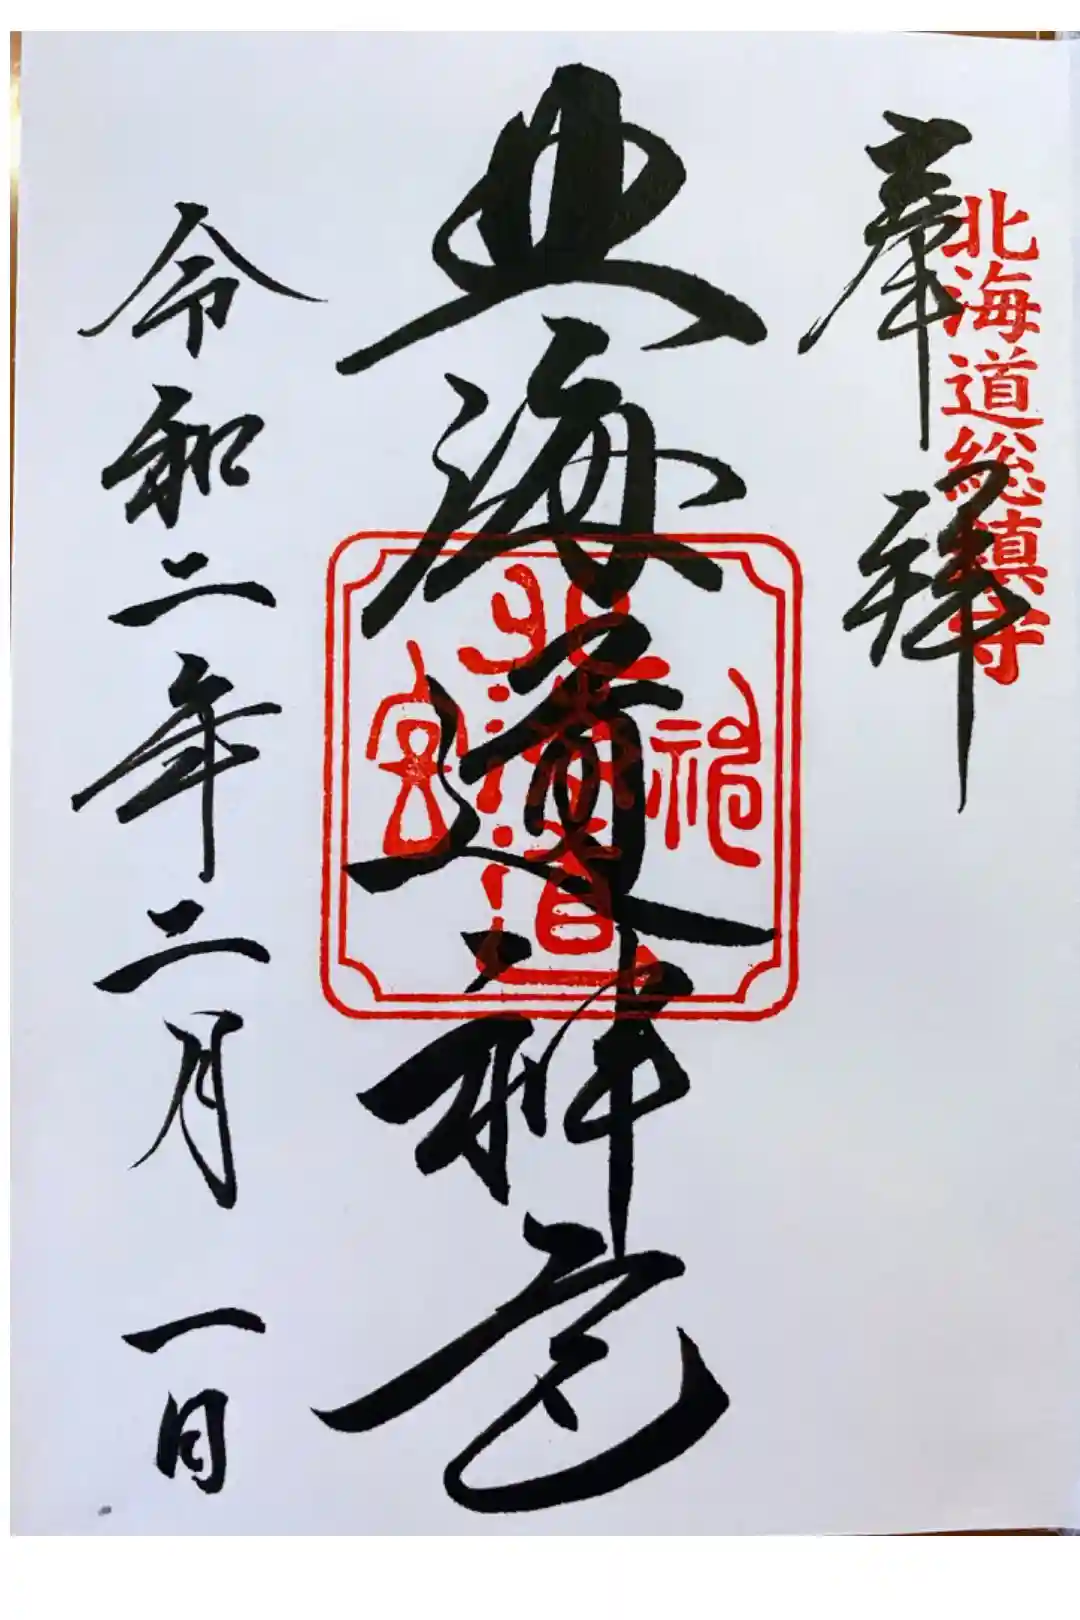 北海道総鎮守
奉拝
北海道神宮
北海道神宮
令和二年二月一日